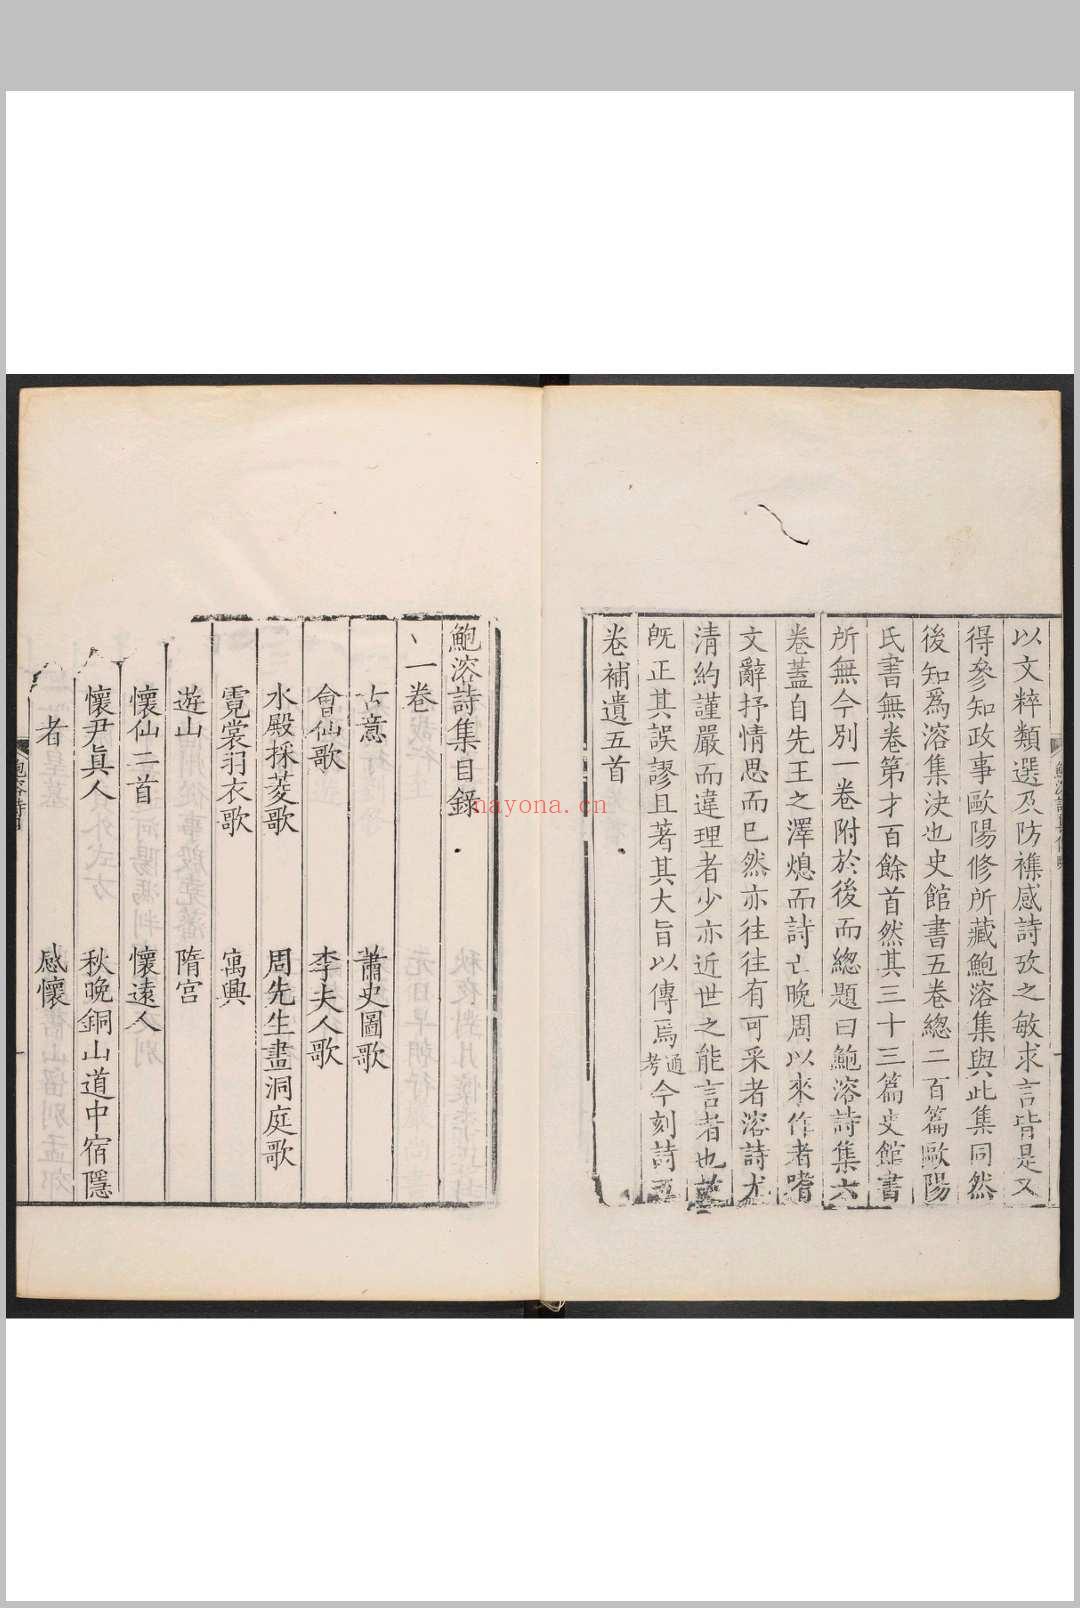 以文粹類選及防襍感詩攷之敏求言皆是又
得參知政事歐陽修所藏鮑溶集與此集同然
後知爲溶集決也史館書五卷總二百篇歐陽
氏書無卷第才百餘首然其三十三篇史館書
所無今別一卷附於後而緫題曰鮑溶詩集六
卷蓋自先王之澤熄而詩亡晚周以來作者嗜
文辭抒情思而已然亦往往有可采者溶詩尤
清約謹嚴而違理者少亦近世之能言者也故
旣正其誤謬且著其大旨以傳焉通考今刻詩五
卷補遺五首
鮑溶詩集目錄
一卷
古意 蕭史圖歌
會仙歌 李夫人歌
水殿採菱歌 周先生畫洞庭歌
霓裳羽衣歌 寓興
遊山 隋宮
懷仙二首 懷遠人
懷尹眞人 秋晚銅山道中宿隱
者 感懷
鮑溶詩目
nayona.cn